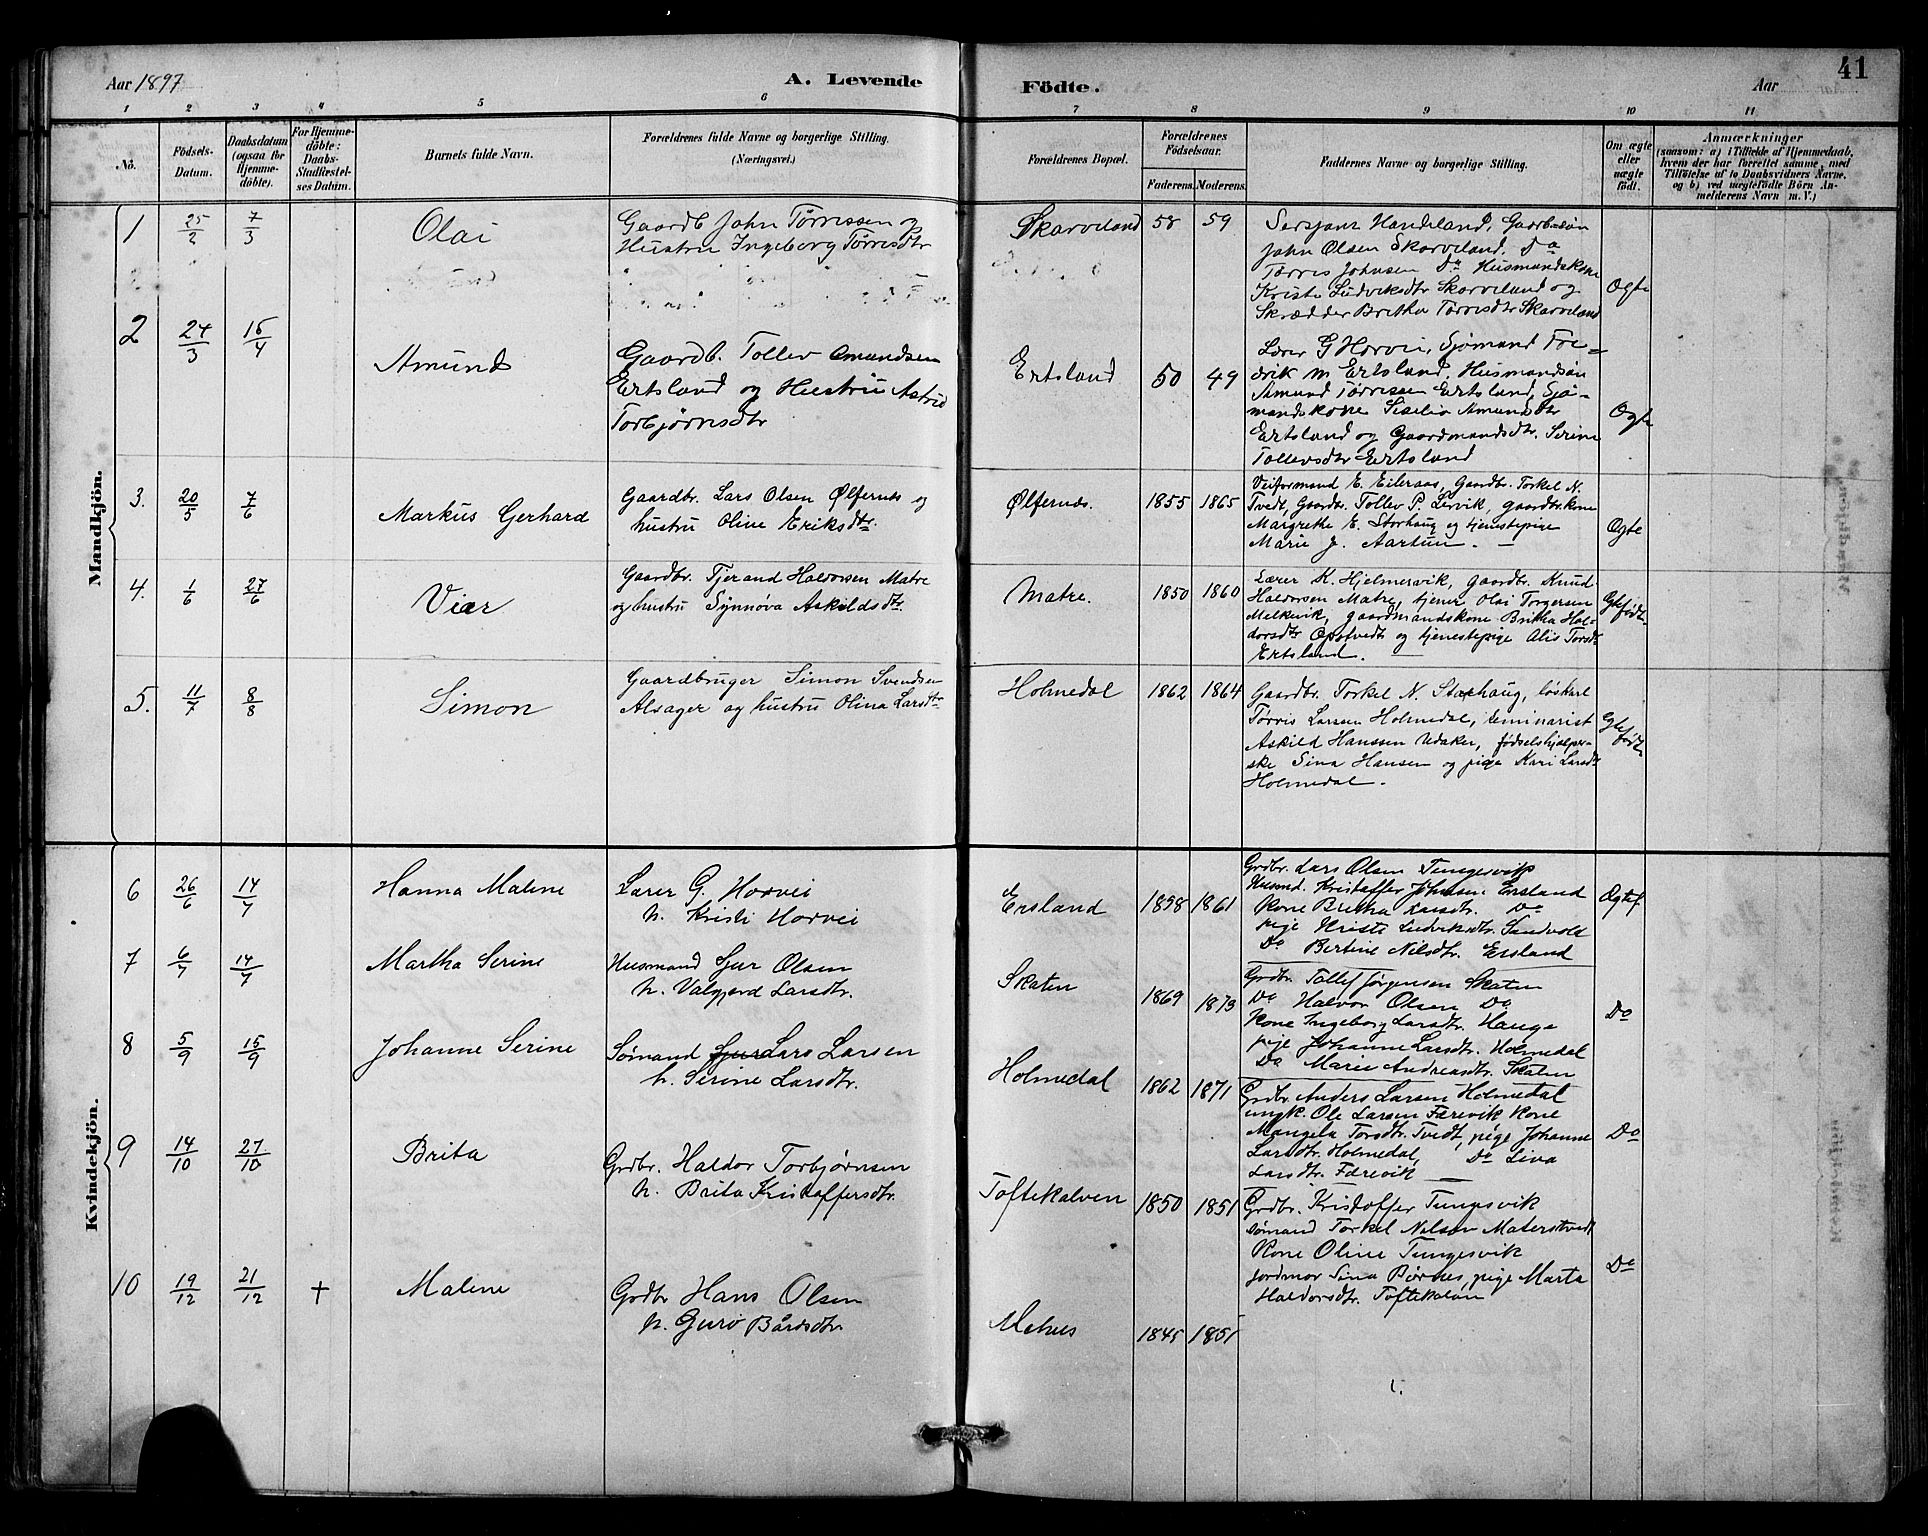 Aar 1897
A. Levende
Födte.
Aar
41
1 2 3 4 5 6 7 8 9 10 11
No.
Födsels-
Datum.
Daabsdatum
(ogsaa for
Hjemme-
döbte).
For Hjemme-
döbte:
Daabs-
Stadfæstel-
ses Datum.
Barnets fulde Navn.
Forældrenes fulde Navne og borgerlige Stilling.
(Næringsvei.)
Forældrenes Bopæl.
Forældrenes
Födselsaar.
Faderens. Moderens.
Faddernes Navne og borgerlige Stilling.
Om ægte
eller
uægte
födt.
Anmærkninger
(saasom: a) i Tilfælde af Hjemmedaab,
hvem der har forrettet samme, med
Tilföielse af to Daabsvidners Navne,
og b) ved uægtefödte Börn An-
melderens Navn m. V.)
Mandkjön.
1 25/2 7/3 Olai
Gaardb John Tørrissen og
Hustru Ingeborg Tørrisdtr
Skarveland 58 59
Sersjant Handeland, Gaardbsøn
John Olsen Skarveland, Do
Tørris Johnsen Do Husmandskone
Kriste Ludviksdtr Skarveland og
Skrædder Britha Tørrisdtr Skarveland
Ogte
2 24/3 15/4 Amund
Gaardb. Tollev Omundsen
Ertsland og Hustru Astrid
Torbjørnsdtr
Ertsland 50 49
Lærer G Horvei, Sjømand Fre=
drik M Ertsland, Husmandsøn
Amund Tørrissen Ertsland, Sjø-
mandskone Siselia Amundsdtr
Ertsland og Gaardmandsdtr. Serine
Tollevsdtr Ertsland
Ogte
3. 20/5 7/6 Markus Gerhard
Gaardbr. Lars Olsen Ølfernes og
hustru Oline Eriksdtr.
Ølfernes. 1855 1865
Veiformand E. Eileraas, Gaardbr. Torkel N.
Tvedt, Gaardbr. Tollev P. Lervik, gaardbr.kone
Margrethe E. Storhaug og tjenestepige
Marie J. Aartun. —
Ogte
4. 1/6 27/6 Vier
Gaardbr. Tjerand Haldorsen Matre
og hustru Synnøva Askildsdtr.
Matre. 1850 1860
Lærer K. Hjelmervik, gaardbr. Knud
Haldorsen Matre, tjener Olai Torgersen
Melkevik, gaardmandskone Britha Hal-
dorsdtr Opsfvedt og tjenestepige Alis Torsdtr
Ertsland. —
Gtefødt.
5. 11/7 8/8 Simon
Gaardbruger Simon Svendsen
Alsager og hustru Olina Larsdtr
Holmedal 1862 1864
Gaardbr. Torkel N. Storhaug, løskarl
Tørris Larsen Holmedal, seminarist
Askild Hanssen Udaker, fødselshjælper-
ske Sina Hansen og pige Kari Larsdtr
Holmedal.
Gtefødt.
Kvindekjön.
6 26/6 14/7 Hanna Maline
Lærer G. Horvei
h. Kristi Horvei
Ersland 1858 1861
Grdbr. Lars Olsen Tungesvik
Husmd. Kristaffer Johnsen Ersland
Kone Britha Larsdtr. Do
pige Kristi Ludviksdtr. Sandvold
Do Bertine Nilsdtr. Ersland
Ogtef.
7 6/7 14/7 Martha Serine
Husmand Sjur Olsen
h. Valgjerd Larsdtr.
Skaten 1869 1873
Grdbr. Tollef Jørgensen Skaten
Do Halvor Olsen Do
Kone Ingeborg Larsdtr. Hauge
pige Johanne Larsdtr. Holmedal
Do Marie Andreasdtr. Skaten
Do
8 5/9 15/9 Johanne Serine
Sømand Sjur Lars Larsen
h. Serine Larsdtr.
Holmedal 1862 1871
Grdbr. Anders Larsen Holmedal
ungk. Ole Larsen Færevik Kone
Mangela Torsdtr. Tvedt, pige Johanne
Larsdtr. Holmedal, Do Lina
Larsdtr. Færevik —
Do
9 14/10 27/10 Brita
Grdbr. Haldor Torbjørnsen
h. Brita Kristoffersdtr.
Toftekalven 1850 1851
Grdbr. Kristoffer Tungesvik
Sømand Torkel Nilsen Materstvedt
Kone Oline Tungesvik
Jordmor Sina Børnes, pige Marta
Haldorsdtr. Toftekalven
Do
10 19/12 21/12 + Maline
Grdbr Hans Olsen
h. Guro Bårdsdtr.
Mehus 1845 1851